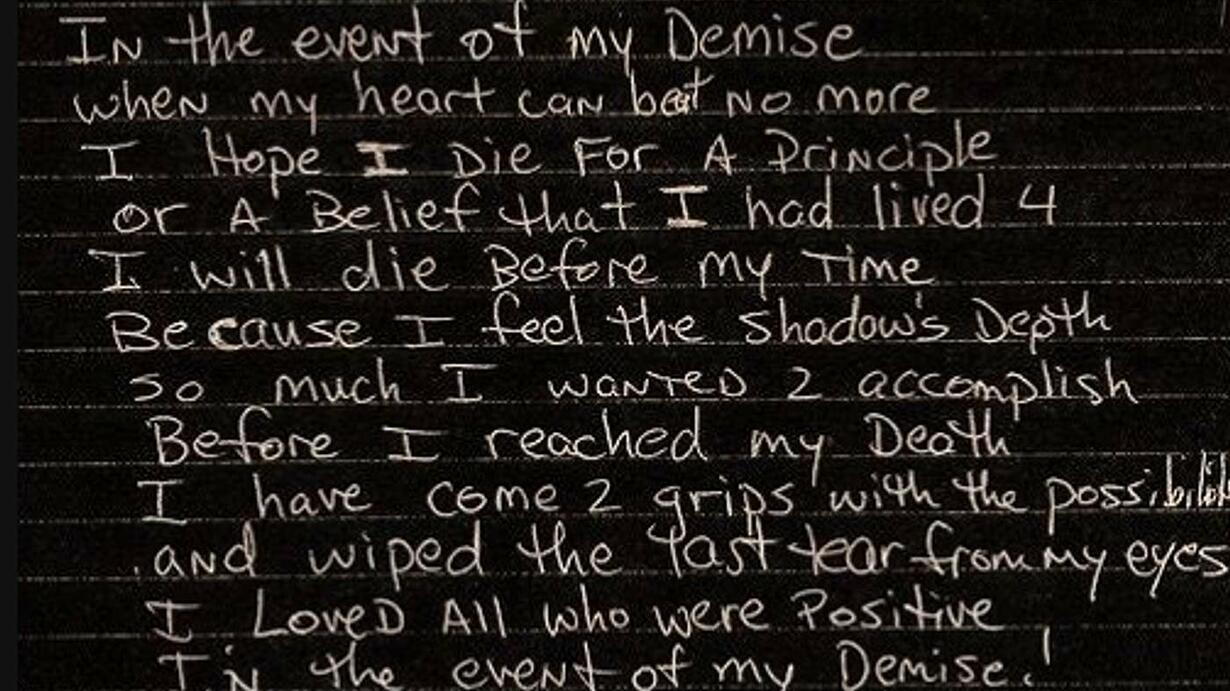 IN the event of my Demise
when my heart can beat NO more
I Hope I Die For A Principle
or A Belief that I had lived 4
I will die Before my Time
Because I feel the shadow's Depth
so much I wanted 2 accomplish
Before I reached my Death
I have come 2 grips with the possibilit
and wiped the last tear from my eyes
I Loved All who were Positive
In the event of my Demise!